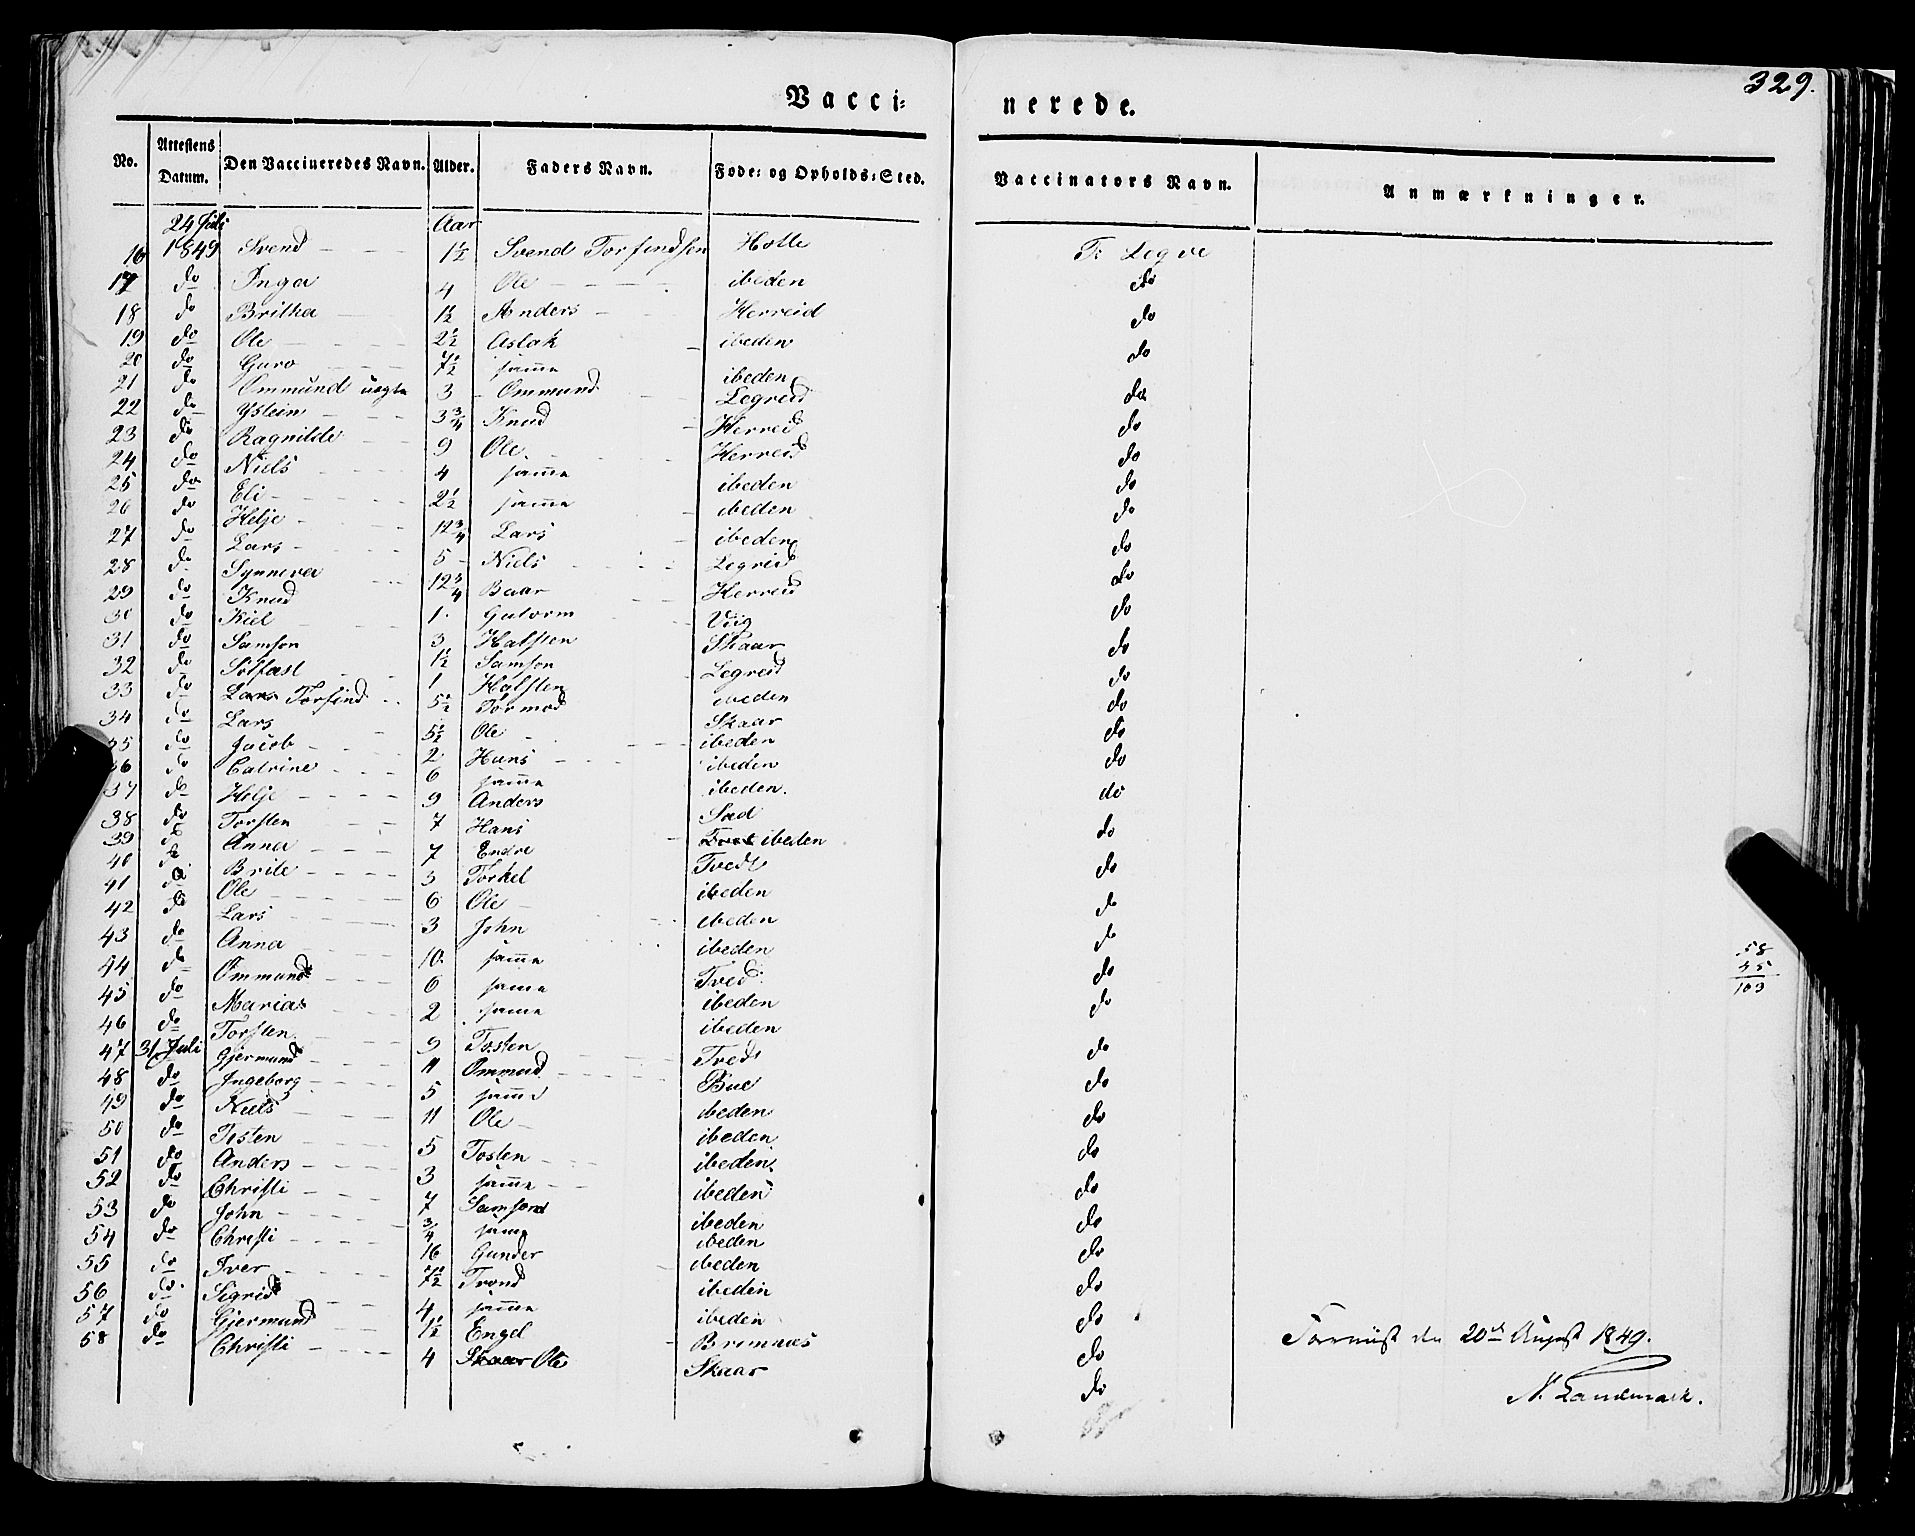 329.
Vacci: nerede.
No. Attestens Datum. Den Vaccineredes Navn. Alder. Faders Navn. Føde: og Opholds:Sted. Vaccinators Navn. Anmærkninger.
24 Juli Aar
16 1849 Svend 1½ Svend Torfindsen Hotle T. Legre
17 do Inga 4 Ole ibeden do
18 do Britha 1½ Anders Herreid do
19 do Ole 2½ Aslak ibeden do
20 do Guro 7½ samme ibeden do
21 do Ommund uegte 3 Ommund Legreid do
22 do Ystein 3¾ Knud Herreid do
23 do Ragnilde 9 Ole Herreid do
24 do Niels 4 samme ibeden do
25 do Eli 2½ samme ibeden do
26 do Helje 12¾ Lars ibeden do
27 do Lars 5 Niels Legreid do
28 do Synneva 12¾ Baar Herreid do
29 do Knud 1 Gutorm Viig do
30 do Kiel 3 Halsten Skaar do
31 do Samson 1½ Samson Legreid do
32 do Solfast 1 Halsten ibeden do
33 do Lars Torfind 5½ Tormod Skaar do
34 do Lars 5½ Ole ibeden do
35 do Jacob 2 Hans ibeden do
36 do Catrine 6 samme ibeden do
37 do Helje 9 Anders Sad do
38 do Torsten 7 Hans ibeden do
39 do Anna 7 Endre Tvedt do
40 do Brite 3 Torkel ibeden do
41 do Ole 6 Ole ibeden do
42 do Lars 3 John ibeden do
43 do Anna 10 samme Tved do
44 do Ommund 6 samme ibeden do
45 do Marias 2 samme ibeden do
46 do Torsten 9 Tosten Tved do
47 31 Juli Gjermund 11 Ommund Bue do
48 do Ingeborg 5 samme ibeden do
49 do Niels 11 Ole ibeden do
50 do Tosten 5 Tosten ibeden do
51 do Anders 3 samme ibeden do
52 do Christi 7 Samson ibeden do
53 do John ¾ samme ibeden do
54 do Christi 16 Gunder ibeden do
55 do Iver 7½ Trond ibeden do
56 do Sigrid 4 samme ibeden do
57 do Gjermund 1½ Engel Bremnæs do
58 do Christi 4 Skaar Ole Skaar do
58
45
103
20de August 1849.
N. Landmark.